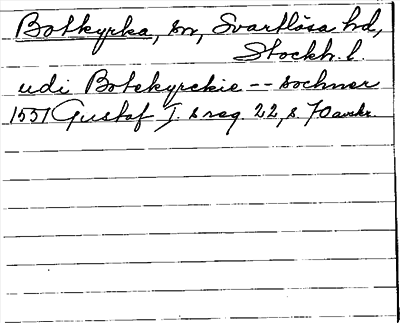 Botkyrka, sn, Svartlösa hd,
Stockh. l.
udi Botekyrckie -- sochner
1551 Gustaf I:s reg. 22, s 70 avskr.